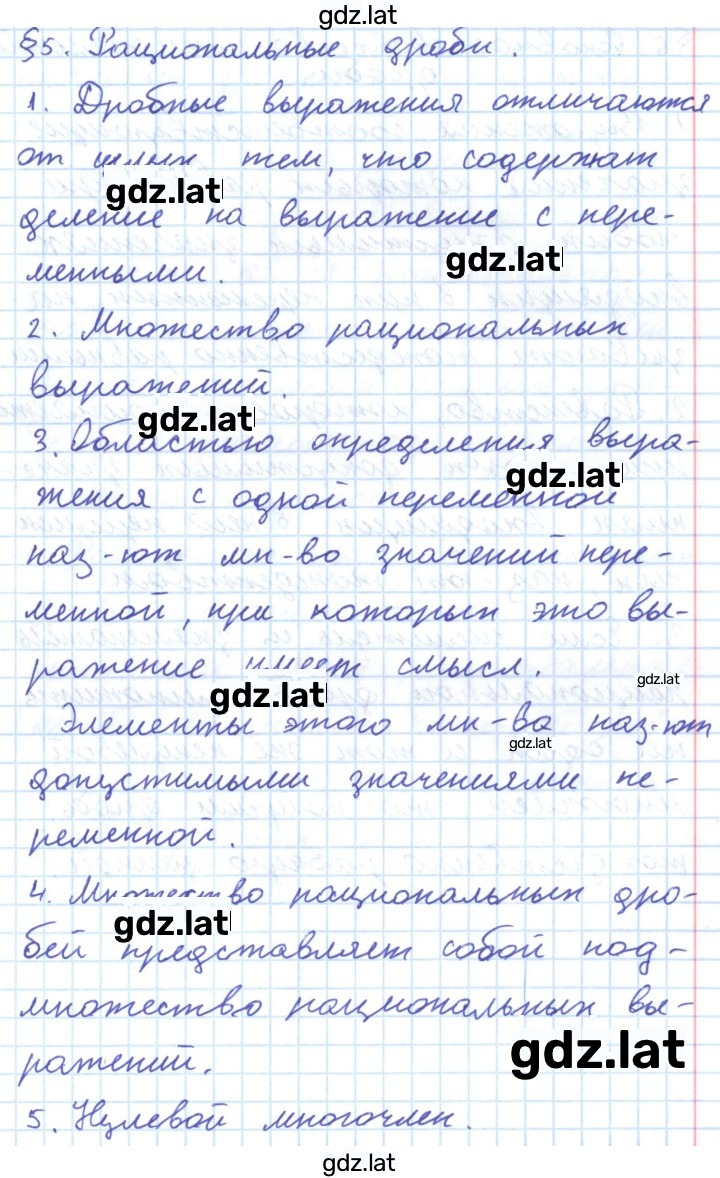 gdz.lat
§5. Рациональные дроби.
1. Дробные выражения отличаются
от целых тем, что содержат
gdz.lat
деление на выражение с пере-
gdz.lat
менными.
2. Множество рациональных
выражений.
gdz.lat
3. Областью определения выра-
gdz.lat
жения с одной переменной
наз-ют мн-во значений пере-
менной, при которых это вы-
ражение имеет смысл.
gdz.lat
gdz.lat
Элементы этого мн-ва наз-ют
gdz.lat
допустимыми значениями пе-
ременной.
4. Множество рациональных дро-
gdz.lat
бей представляет собой под-
множество рациональных вы-
gdz.lat
ражений.
5. Нулевой многочлен.
gdz.lat